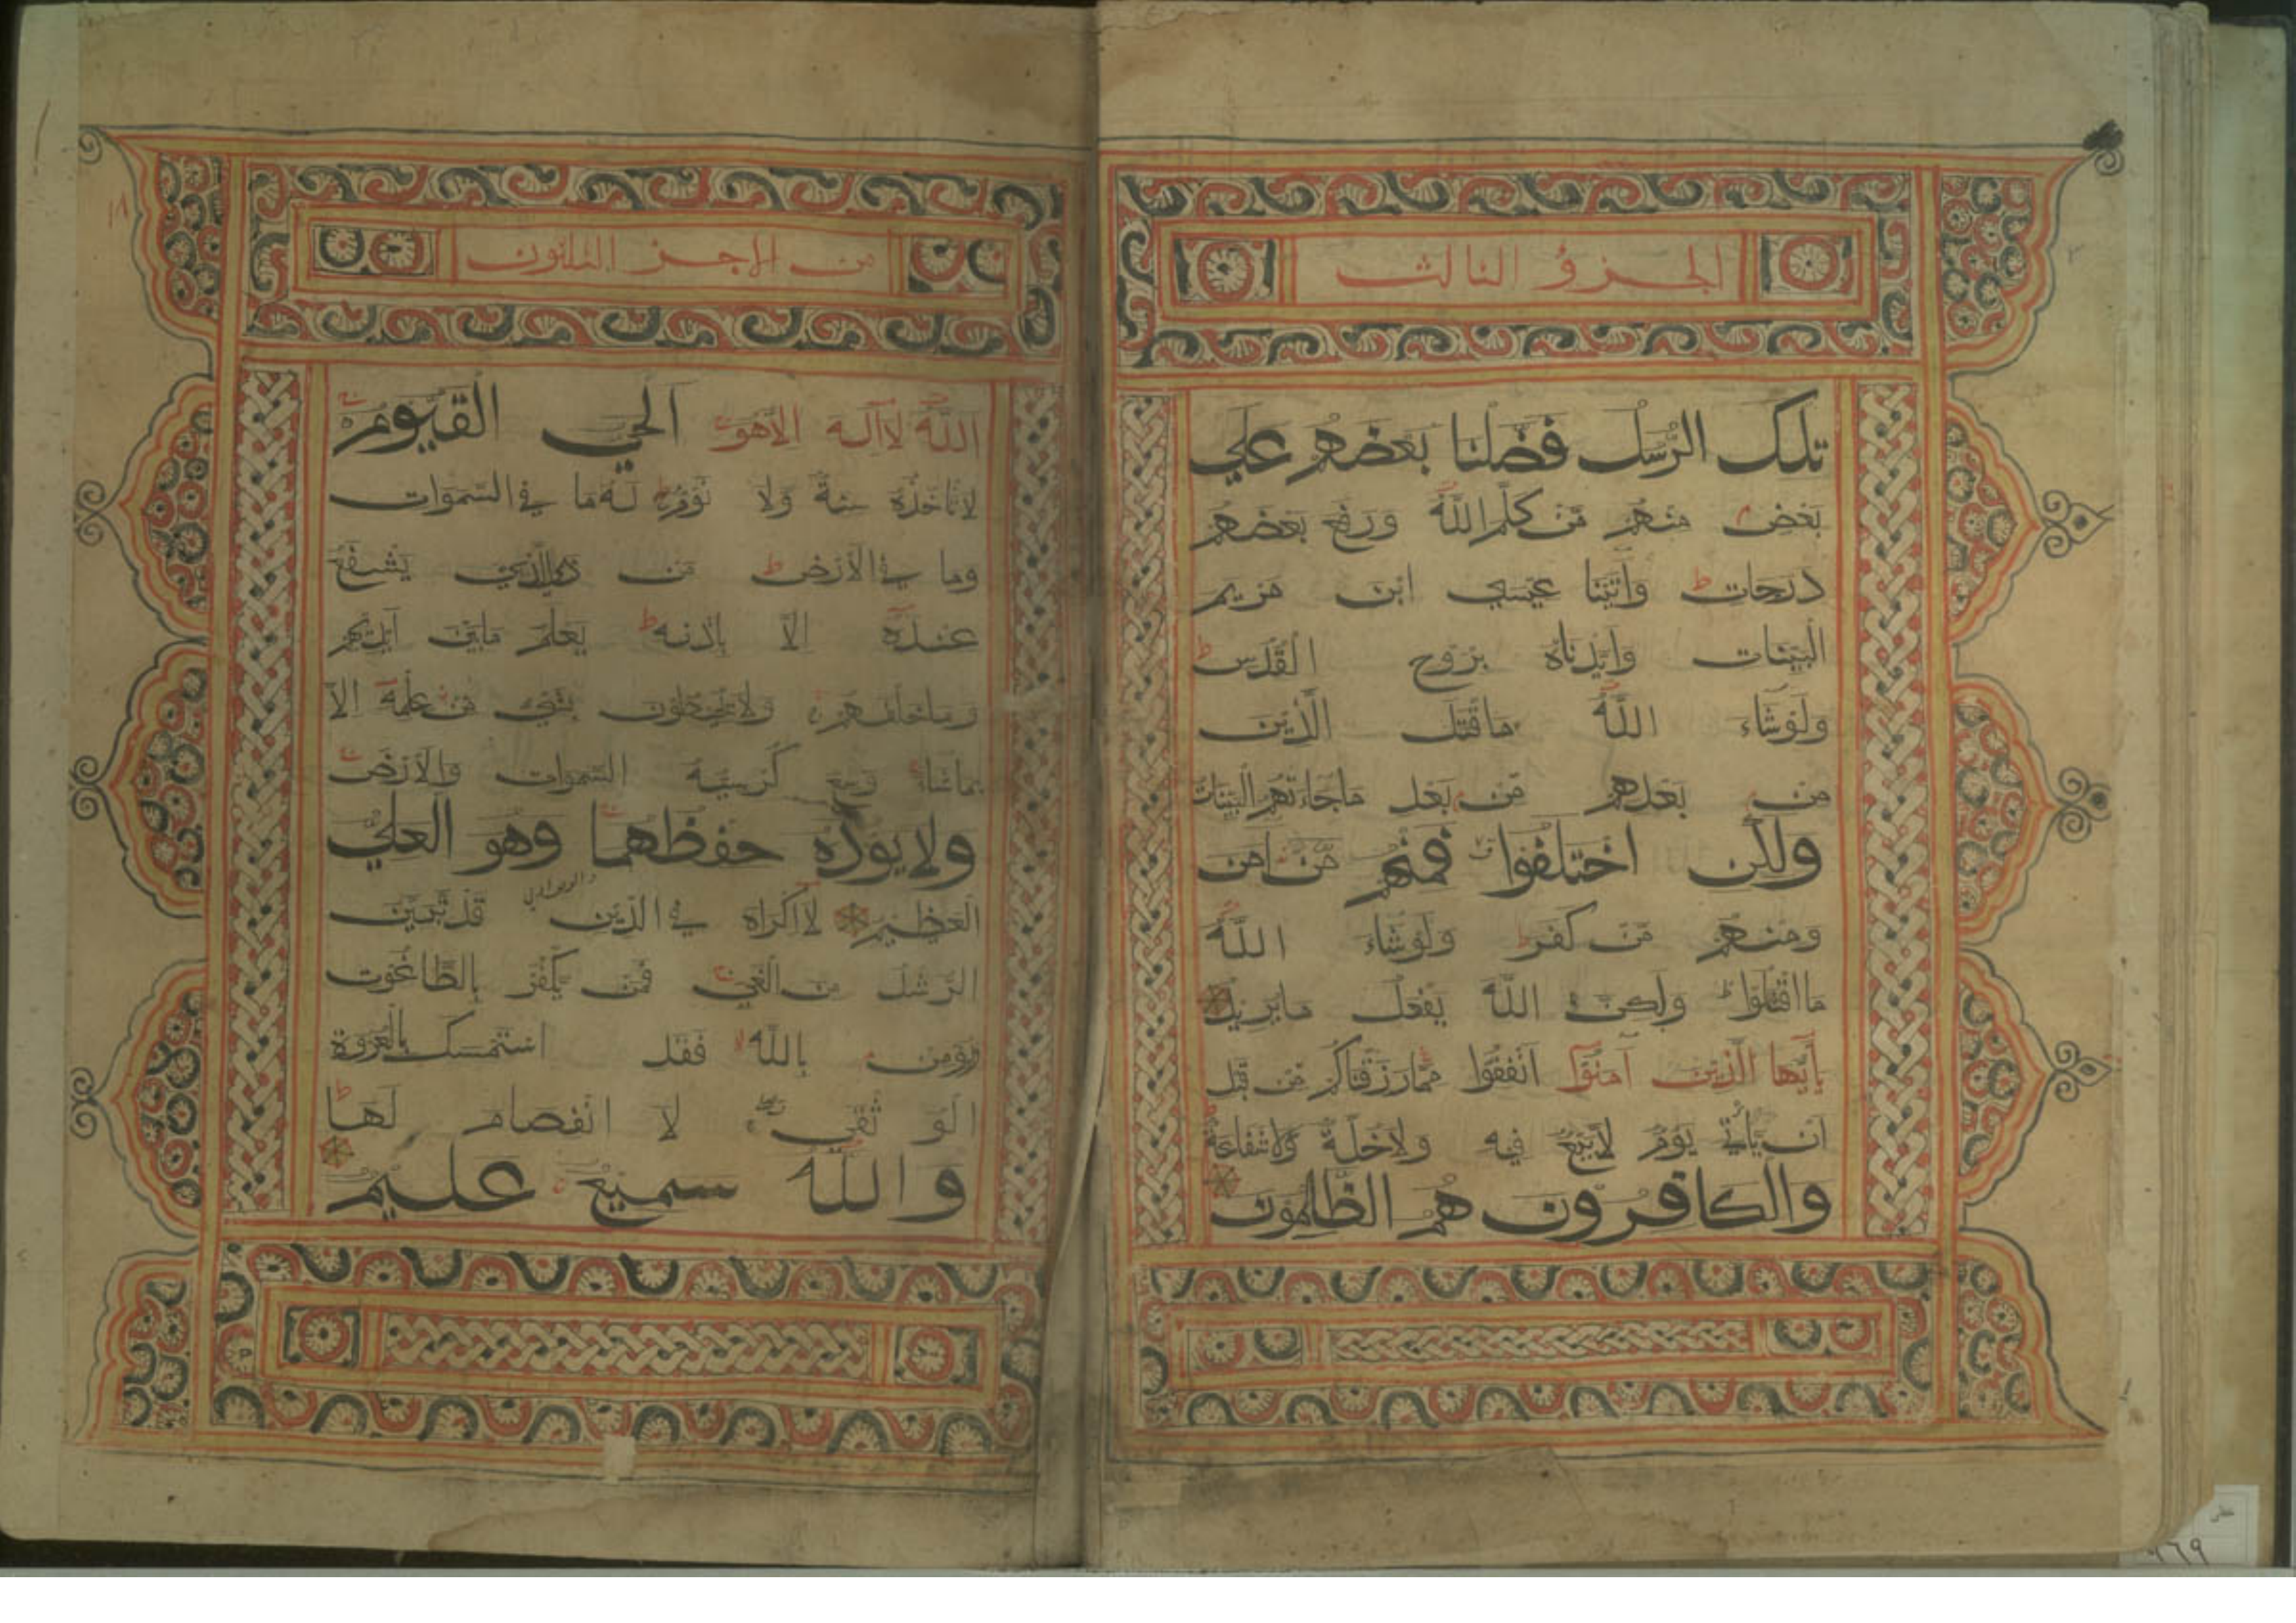 الجزؤ الثالث
تلك الرُّسل فضّلنا بعضهم علي
بعض منهم مّن كلّم اللهُ ورفع بعضهم
درجات ط وآتينا عيسي ابن مريم
البيّنات وايّدناه بروح القُدس ط
ولوشآء اللهُ مااقتتل الّذين
من بعدهم مّن بعد ماجاءتهم البيّنات
ولكن اختلفوا فمنهم مّن امن
ومنهم مّن كفر ط ولوشآء اللهُ
مااقتتلوا ولكنّ اللهَ يفعل مايريد
يأيّها الّذين آمنوآ انفقوا ممّارزقناكم مّن قبل
ان يأتي يومٌ لابيعٌ فيه ولاخلّةٌ ولاشفاعةٌ
والكافرون هم الظّالمون
من الاجز الثلثون
١٨
اللهُ لاآله الاّهو الحي القيّوم
لاتأخذه سنةٌ ولا نومٌ ط له ما في السّموات
وما في الارض ط من ذاالّذي يشفع
عنده الاّ باذنه ط يعلم مابين ايديهم
وماخلفهم ولايحيطون بشي من علمه الاّ
بماشاء وسع كرسيّه السّموات والارض
ولايوده حفظهما وهو العليّ
العظيم لااكراه في الدّين قد تّبيّن
الرّشد من الغي فمن يكفر بالطّاغوت
ويؤمن بالله فقد استمسك بالعروة
الوثقي لا انفصام لها ط
والله سميع عليم
٩٦٩